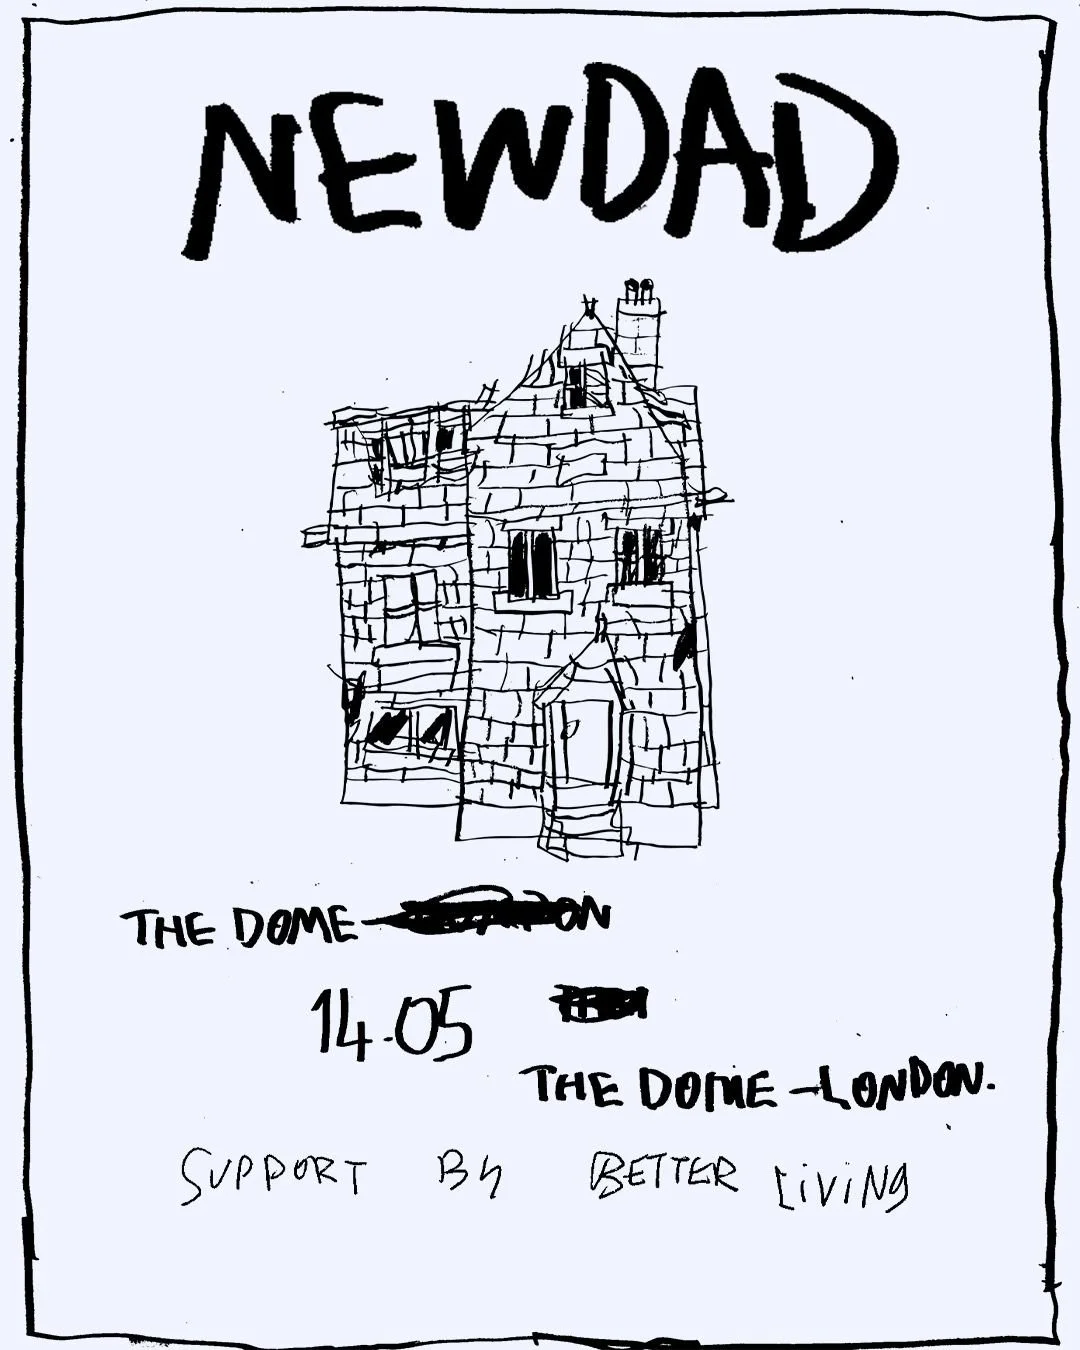 NEWDAD
THE DOME
14.05
THE DOME - LONDON.
SUPPORT BY BETTER LiViNG